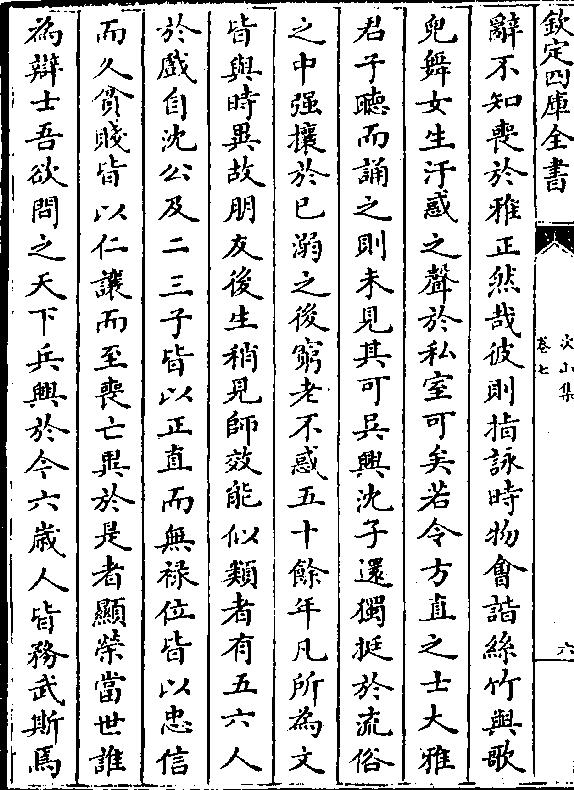 欽定四庫全書
次山集
卷七
六
辭不知喪於雅正然哉彼則指詠時物會諧絲竹與歌
兒舞女生汙惑之聲於私室可矣若令方直之士大雅
君子聽而誦之則未見其可吳興沈子運獨挺於流俗
之中强攘於已溺之後窮老不惑五十餘年凡所為文
皆與時異故朋友後生稍見師效能似類者有五六人
於戲自沈公及二三子皆以正直而無禄位皆以忠信
而久貧賤皆以仁讓而至喪亡異於是者顯榮當世誰
為辯士吾欲問之天下兵興於今六歲人皆務武斯焉